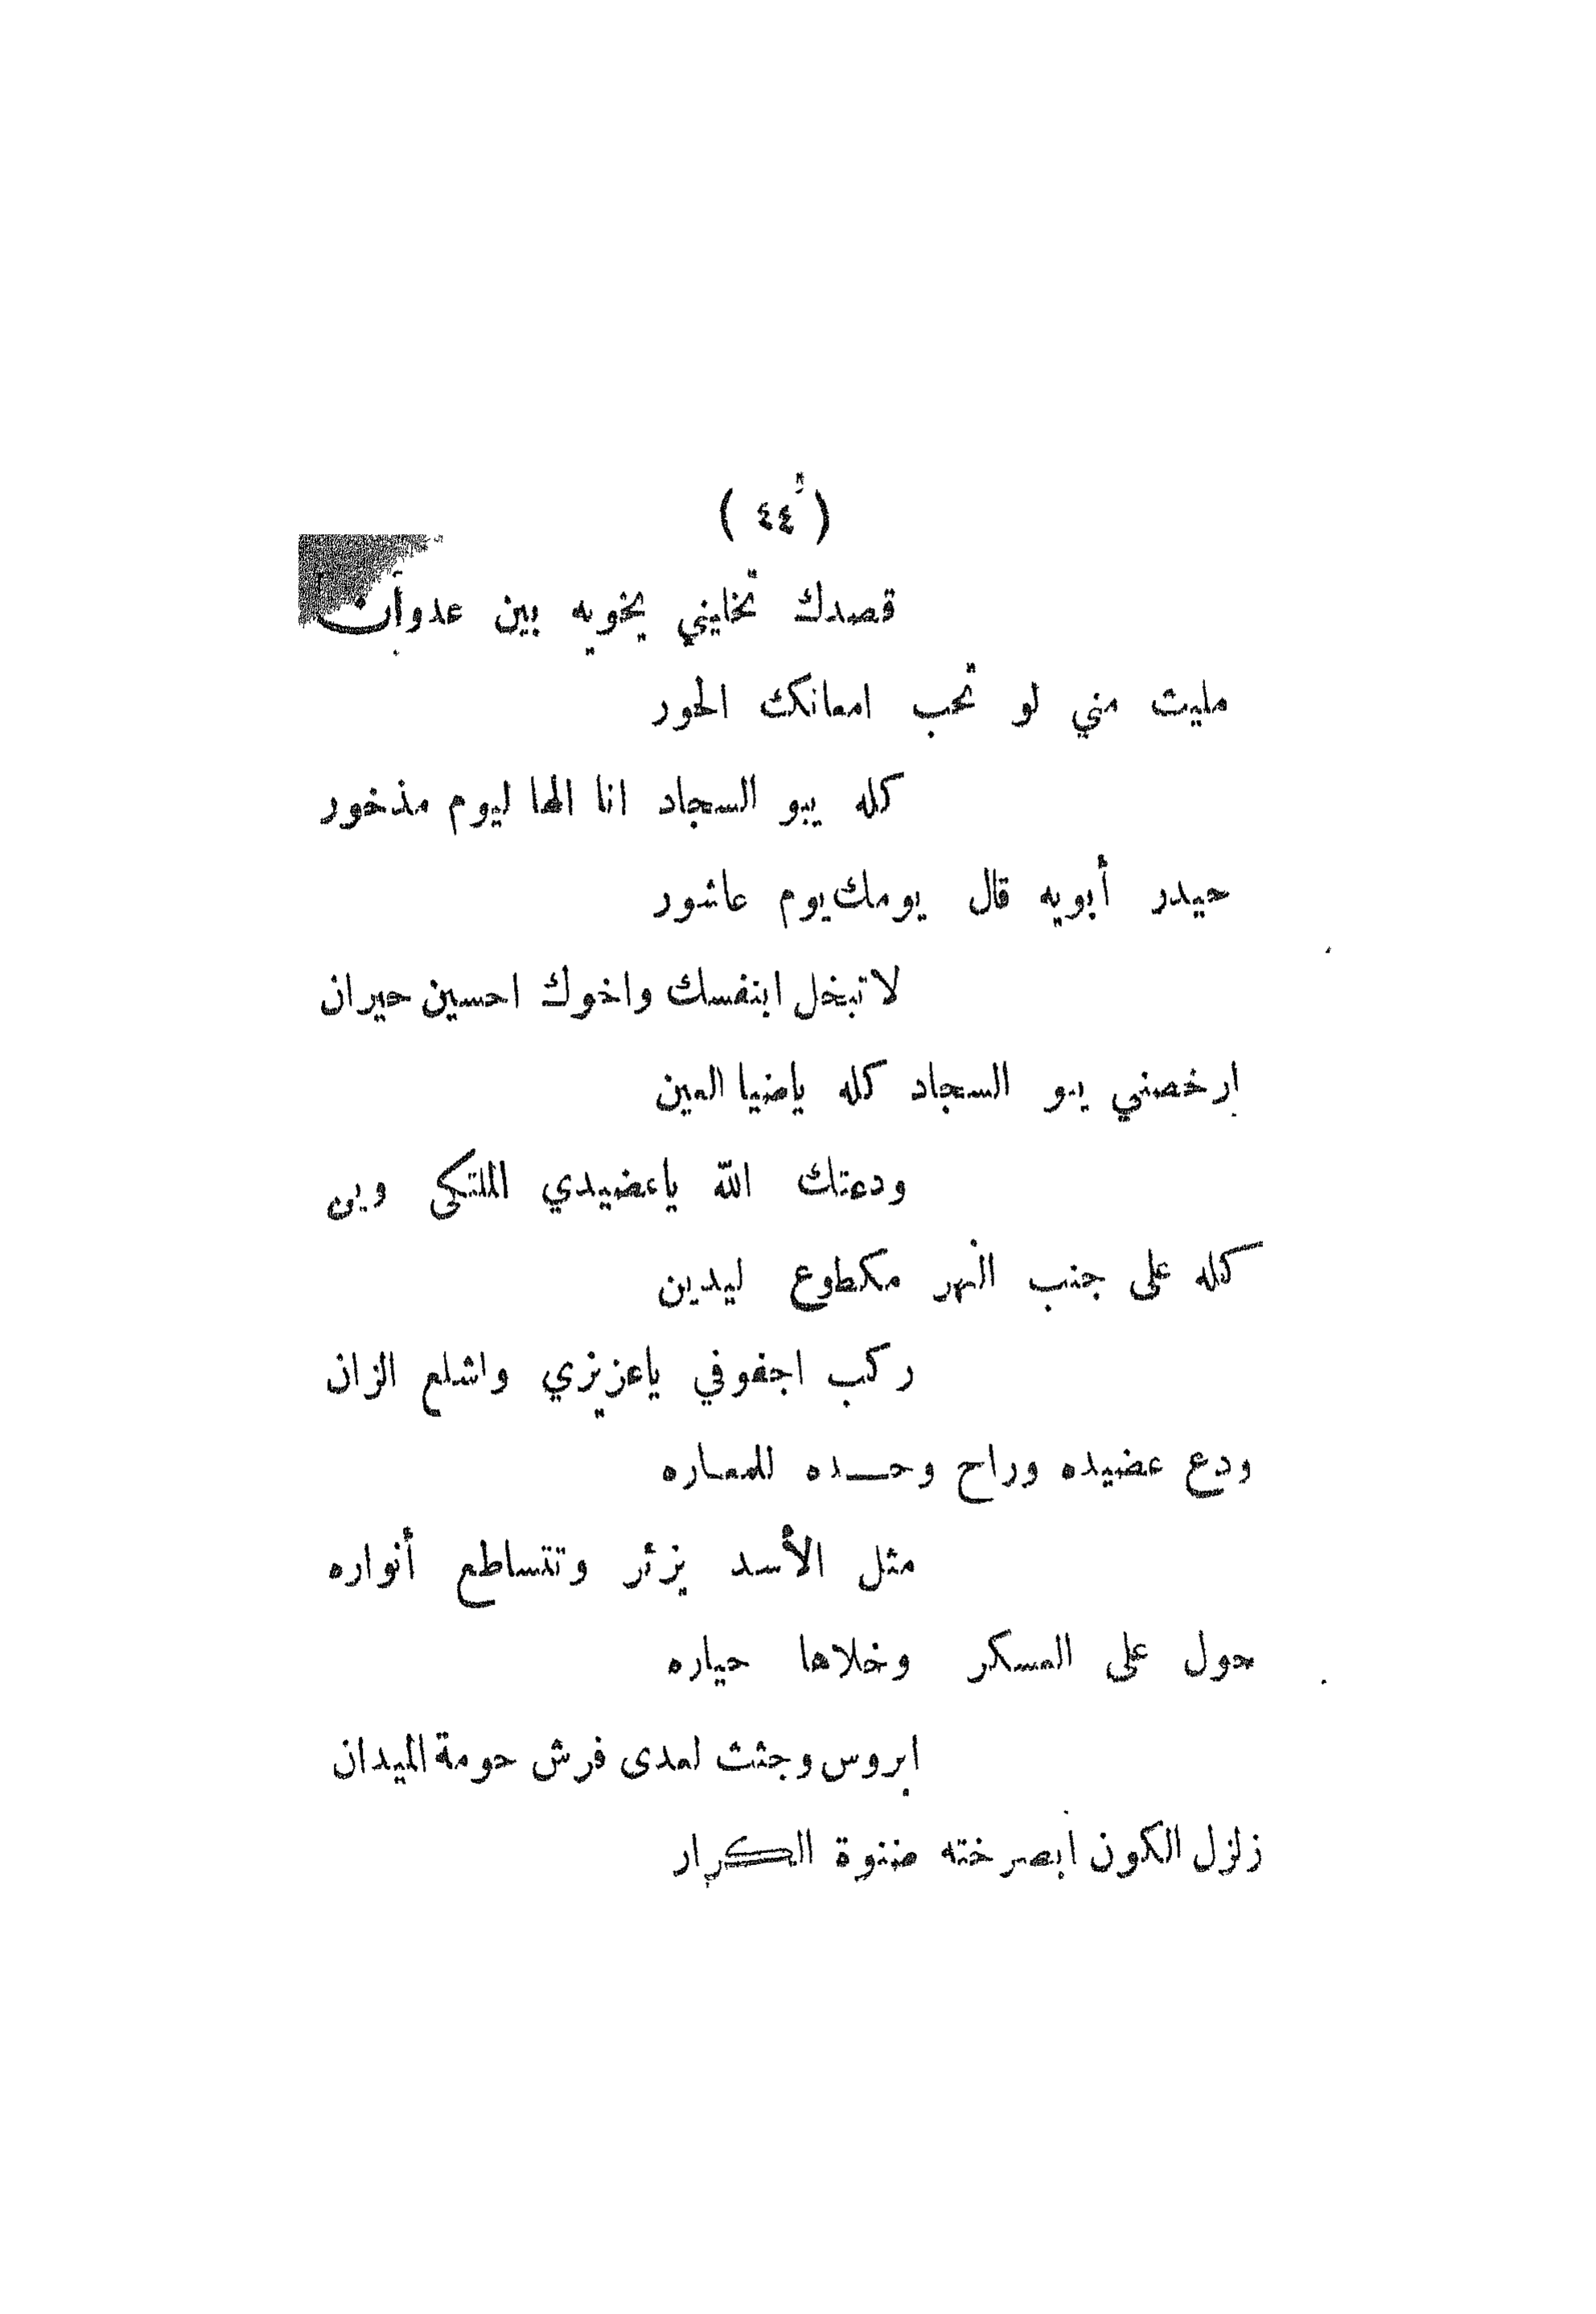 ( ٤٤ )
قصدك تخليني يخويه بين عدوان
مليت مني لو تحب امعانكك الحور
كله يبو السجاد انا الها ليوم مذخور
حيدر أبويه قال يومك يوم عاشور
لاتبخل ابنفسك واخوك احسين حيران
ارخصني يبو السجاد كله ياضيا العين
ودعتك الله ياعضيدي الملتكى وين
كله على جنب النهر مكطوع ليدين
ركب اجفوفي ياعزيزي واشلع الزان
ودع عضيده وراح وحـــده للمعاره
مثل الأسد يزئر وتتساطع أنواره
حول على العسكر وخلاها حياره
ابروس وجثث لعدى فرش حومة الميدان
زلزل الكون ابصرخته ضنوة الكرار